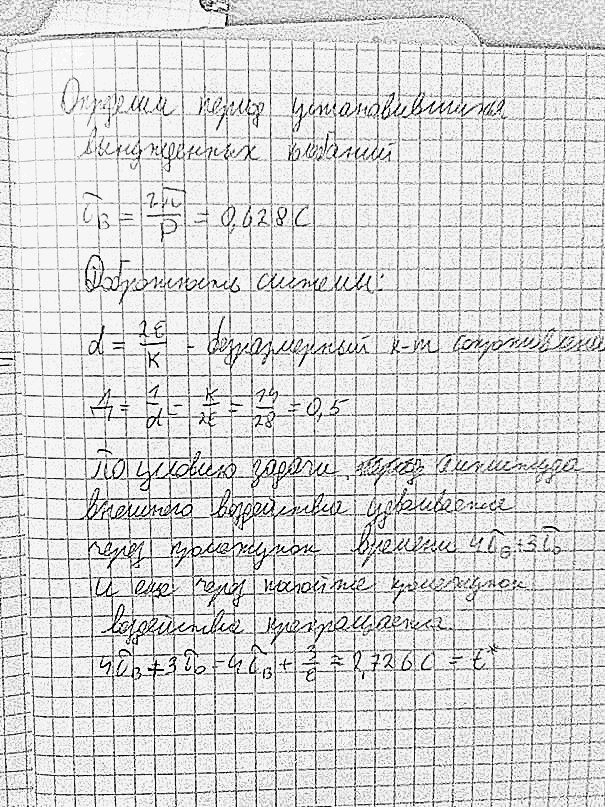 Определим период установившихся
вынужденных колебаний
τ_в = 2π/p = 0,628 с
Добротность системы:
d = 2ε/k - безразмерный к-т сопротивлени
Д = 1/d = k/2ε = 14/28 = 0,5
По условию задачи амплитуда
внешнего воздействия удваивается
через промежуток времени 4τ_в+3τ_0
и еще через такой же промежуток
воздействие прекращается
4τ_в + 3τ_0 = 4τ_в + 3/ε ≈ 2,726 с = t*